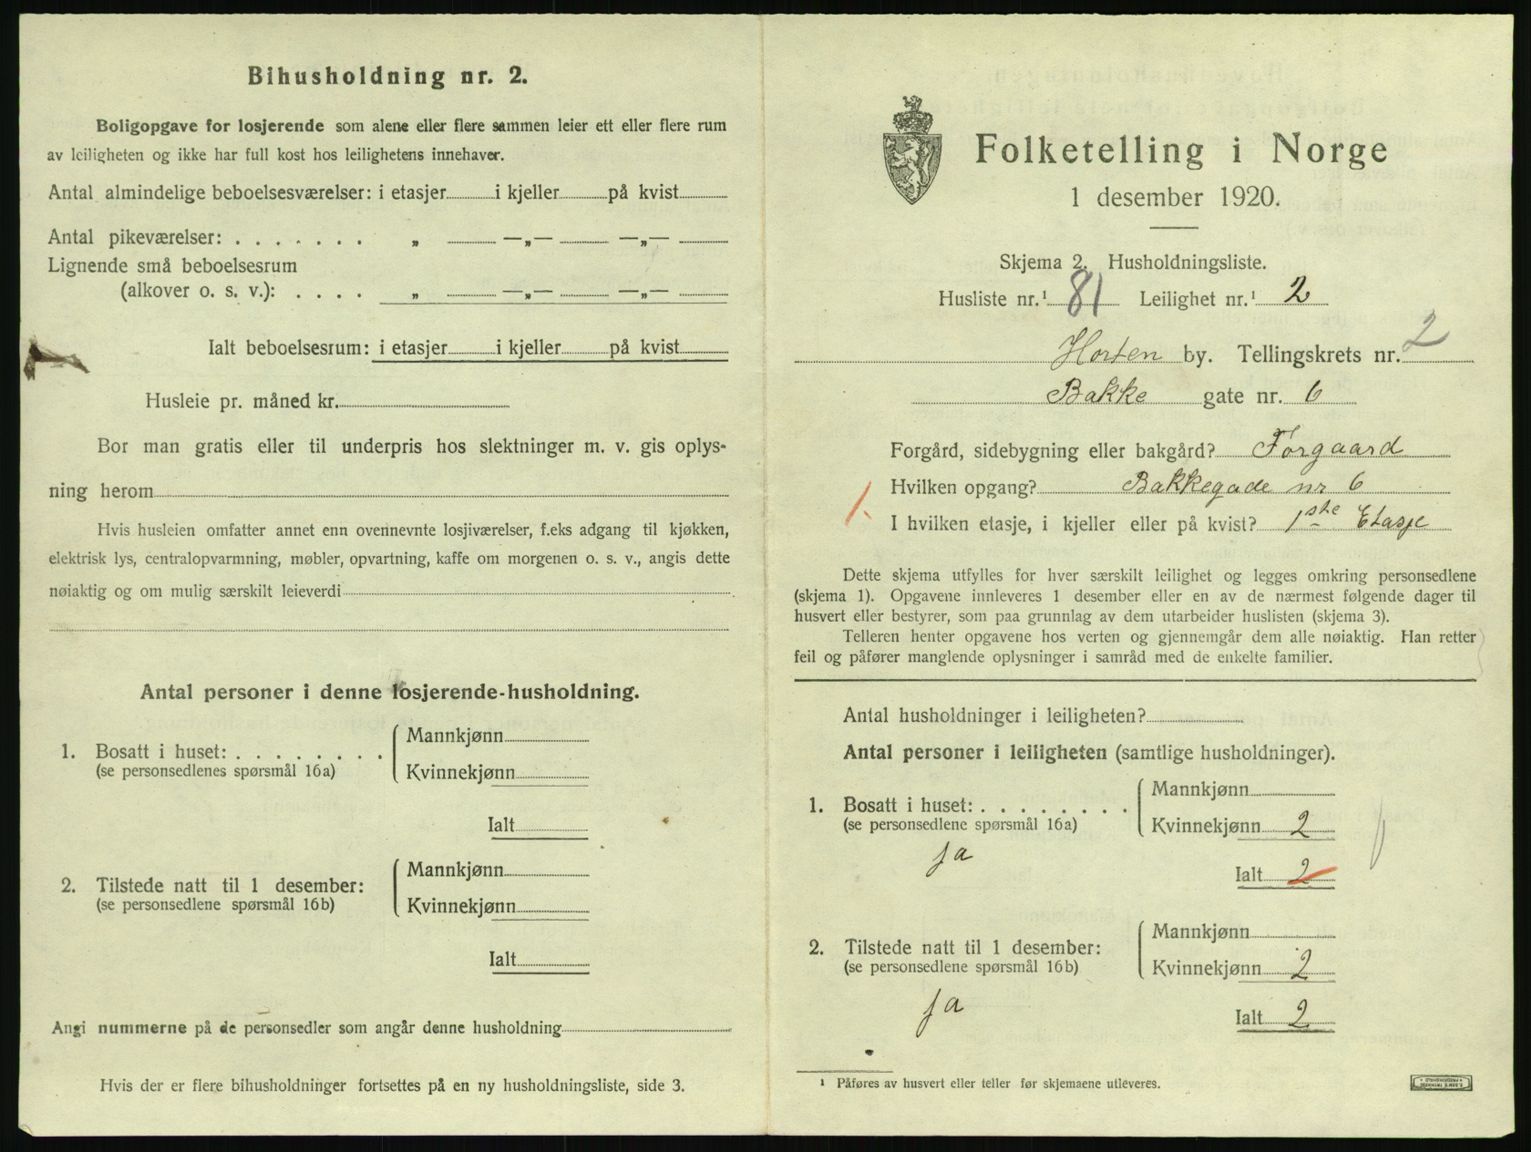 Bihusholdning nr. 2.
Boligopgave for losjerende som alene eller flere sammen leier ett eller flere rum
av leiligheten og ikke har full kost hos leilighetens innehaver.
Antal almindelige beboelsesværelser: i etasjer i kjeller på kvist
Antal pikeværelser: . . . . . . . „ —„— —„—
Lignende små beboelsesrum
(alkover o. s. v.): . . . . „ —„— —„—
Ialt beboelsesrum: i etasjer i kjeller på kvist
Husleie pr. måned kr.
Bor man gratis eller til underpris hos slektninger m. v. gis oplys-
ning herom
Hvis husleien omfatter annet enn ovennevnte losjiværelser, f.eks adgang til kjøkken,
elektrisk lys, centralopvarmning, møbler, opvartning, kaffe om morgenen o. s. v., angis dette
nøiaktig og om mulig særskilt leieverdi
Antal personer i denne losjerende-husholdning.
1. Bosatt i huset: . . . . . . . .
(se personsedlenes spørsmål 16a)
Mannkjønn
Kvinnekjønn
Ialt
2. Tilstede natt til 1 desember:
(se personsedlene spørsmål 16b)
Mannkjønn
Kvinnekjønn
Ialt
Angi nummerne på de personsedler som angår denne husholdning
Hvis der er flere bihusholdninger fortsettes på en ny husholdningsliste, side 3.
Folketelling i Norge
1 desember 1920.
Skjema 2. Husholdningsliste.
Husliste nr.¹ 81 Leilighet nr.¹ 2
Horten by. Tellingskrets nr. 2
Bakke gate nr. 6
Forgård, sidebygning eller bakgård? Forgaard
Hvilken opgang? Bakkegade nr 6
1.
I hvilken etasje, i kjeller eller på kvist? 1ste Etasje
Dette skjema utfylles for hver særskilt leilighet og legges omkring personsedlene
(skjema 1). Opgavene innleveres 1 desember eller en av de nærmest følgende dager til
husvert eller bestyrer, som paa grunnlag av dem utarbeider huslisten (skjema 3).
Telleren henter opgavene hos verten og gjennemgår dem alle nøiaktig. Han retter
feil og påfører manglende oplysninger i samråd med de enkelte familier.
Antal husholdninger i leiligheten?
Antal personer i leiligheten (samtlige husholdninger).
1. Bosatt i huset: . . . . . . . .
(se personsedlene spørsmål 16a)
ja
Mannkjønn
Kvinnekjønn 2
Ialt 2
2. Tilstede natt til 1 desember:
(se personsedlene spørsmål 16b)
ja
Mannkjønn
Kvinnekjønn 2
Ialt 2
¹ Påføres av husvert eller teller før skjemaene utleveres.